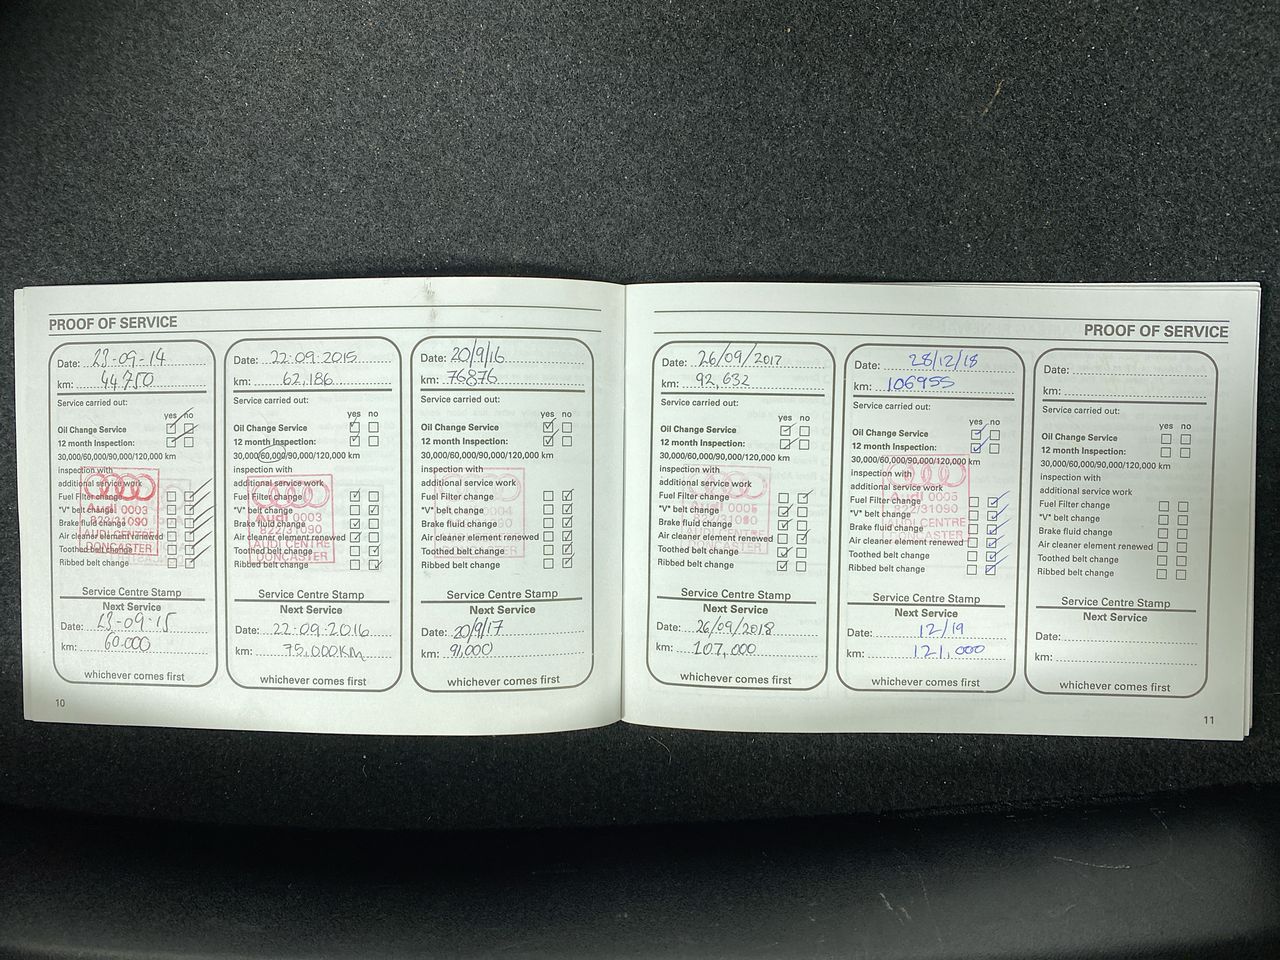 PROOF OF SERVICE
Date: 23-09-14
km: 44750
Service carried out:
yes no
Oil Change Service
12 month Inspection:
30,000/60,000/90,000/120,000 km
inspection with
additional service work
Fuel Filter change
"V" belt change
Brake fluid change
Air cleaner element renewed
Toothed belt change
Ribbed belt change
Audi 0003
822/31090
AUDI CENTRE
DONCASTER
Service Centre Stamp
Next Service
Date: 23-09-15
km: 60.000
whichever comes first
10
Date: 22-09-2015
km: 62,186
Service carried out:
yes no
Oil Change Service
12 month Inspection:
30,000/60,000/90,000/120,000 km
inspection with
additional service work
Fuel Filter change
"V" belt change
Brake fluid change
Air cleaner element renewed
Toothed belt change
Ribbed belt change
Audi 0003
822/31090
AUDI CENTRE
DONCASTER
Service Centre Stamp
Next Service
Date: 22-09-2016
km: 75,000KM
whichever comes first
Date: 20/9/16
km: 76876
Service carried out:
yes no
Oil Change Service
12 month Inspection:
30,000/60,000/90,000/120,000 km
inspection with
additional service work
Fuel Filter change
"V" belt change
Brake fluid change
Air cleaner element renewed
Toothed belt change
Ribbed belt change
Service Centre Stamp
Next Service
Date: 20/9/17
km: 91,000
whichever comes first
PROOF OF SERVICE
Date: 26/09/2017
km: 92,632
Service carried out:
yes no
Oil Change Service
12 month Inspection:
30,000/60,000/90,000/120,000 km
inspection with
additional service work
Fuel Filter change
"V" belt change
Brake fluid change
Air cleaner element renewed
Toothed belt change
Ribbed belt change
Service Centre Stamp
Next Service
Date: 26/09/2018
km: 107,000
whichever comes first
Date: 28/12/18
km: 106955
Service carried out:
yes no
Oil Change Service
12 month Inspection:
30,000/60,000/90,000/120,000 km
inspection with
additional service work
Fuel Filter change
"V" belt change
Brake fluid change
Air cleaner element renewed
Toothed belt change
Ribbed belt change
Audi 0003
822/31090
AUDI CENTRE
DONCASTER
Service Centre Stamp
Next Service
Date: 12/19
km: 121,000
whichever comes first
Date:
km:
Service carried out:
yes no
Oil Change Service
12 month Inspection:
30,000/60,000/90,000/120,000 km
inspection with
additional service work
Fuel Filter change
"V" belt change
Brake fluid change
Air cleaner element renewed
Toothed belt change
Ribbed belt change
Service Centre Stamp
Next Service
Date:
km:
whichever comes first
11